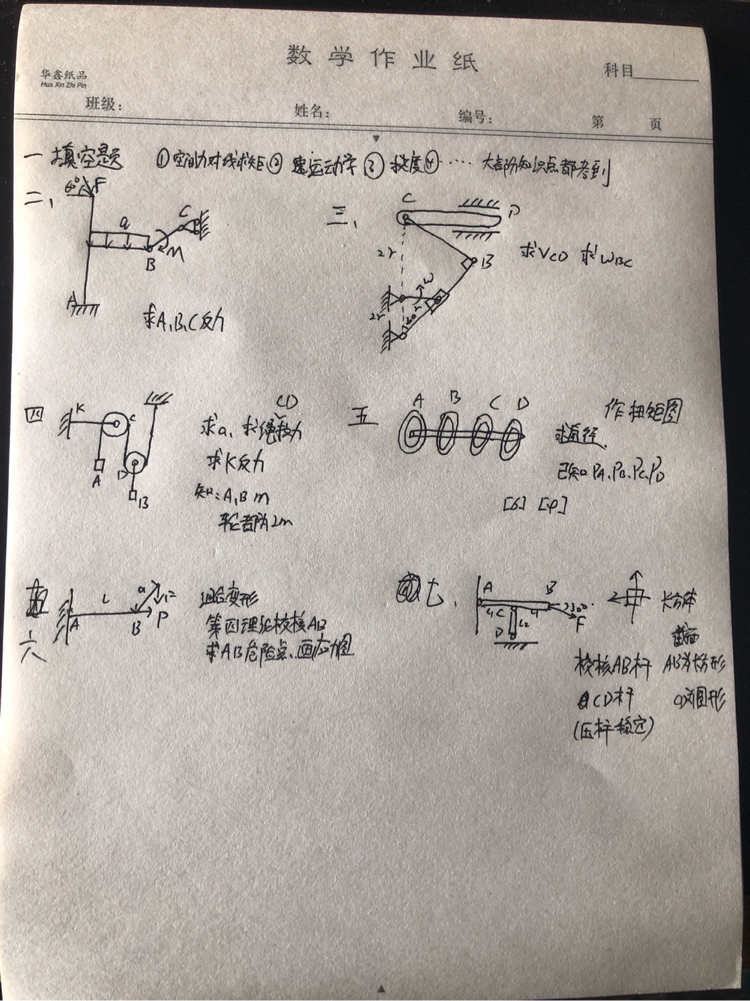 数学作业纸
华鑫纸品
Hua Xin Zhi Pin
科目
班级：
姓名：
编号：
第 页
一 填空题 ①空间力对线求矩② 运动学③ 挠度④…… 大部分知识点都考到
二、
60° F
q
C
B
M
A
求A,B,C反力
三、
C
D
2r
B
求VCD 求WBC
w
r
2r
四
K
C
D
A
B
CD
求a、求绳张力
求K反力
知:A,B m
轮都为2m
五
A B C D
作扭矩图
求直径
已知PA,PB,PC,PD
[δ] [φ]
六
L
a
A B P
组合变形
第四理论校核AB
求AB危险点、画应力图
七、
A
B
C
D
30°
F
长方体
截面
校核AB杆
AB为长方形
CD杆
CD为圆形
(压杆稳定)